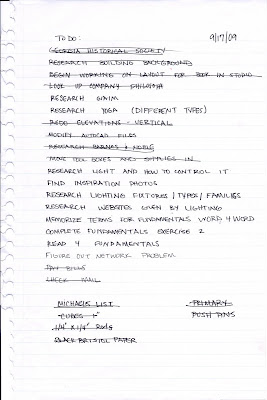 TO DO: 9/17/09
GEORGIA HISTORICAL SOCIETY
RESEARCH BUILDING BACKGROUND
BEGIN WORKING ON LAYOUT FOR BOOK IN STUDIO
LOOK UP COMPANY PHILOSOPHY
RESEARCH
RESEARCH YOGA (DIFFERENT TYPES)
REDO ELEVATIONS - VERTICAL
MODIFY AUTOCAD FILES
RESEARCH BARNES & NOBLE
MOVE TOOL BOXES AND SUPPLIES IN
RESEARCH LIGHT AND HOW TO CONTROL IT
FIND INSPIRATION PHOTOS
RESEARCH LIGHTING FIXTURES / TYPES / FAMILIES
RESEARCH WEBSITES GIVEN BY LIGHTING
MEMORIZE TERMS FOR FUNDAMENTALS WORD 4 WORD
COMPLETE FUNDAMENTALS EXERCISE 2
READ 4 FUNDAMENTALS
FIGURE OUT NETWORK PROBLEM
PAY BILLS
CHECK MAIL
MICHAELS LIST PRIMARY
CUBES 1" PUSH PINS
1/4" X 1/4" RODS
BLACK BRISTOL PAPER